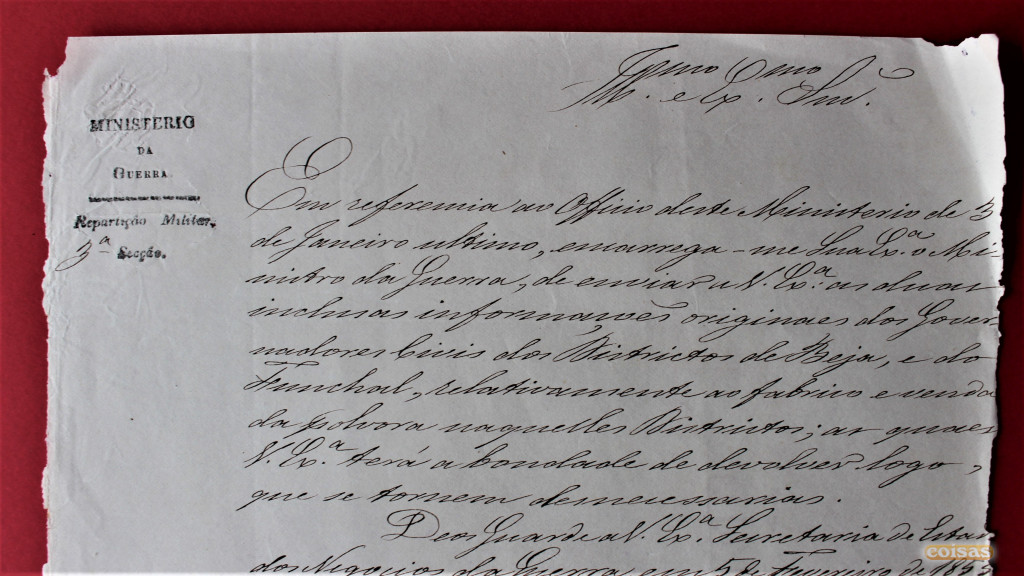 MINISTERIO
DA
GUERRA
Repartição Militar,
3ª Secção.
Illmo e Exmo Snr.
Em referencia ao Officio deste Ministerio de 3
de Janeiro ultimo, encarrega-me Sua Exª o Mi-
nistro da Guerra, de enviar a V. Exª as duas
inclusas informações originaes dos Gover-
nadores Civis dos Districtos de Beja, e do
Funchal, relativamente ao fabrico e venda
da polvora naquelles Districtos; as quaes
V. Exª terá a bondade de devolver logo,
que se tornem desnecessarias.
Deos Guarde a V. Exª Secretaria de Esta-
dos Negocios da Guerra em 5 de Fevereiro de
coisas